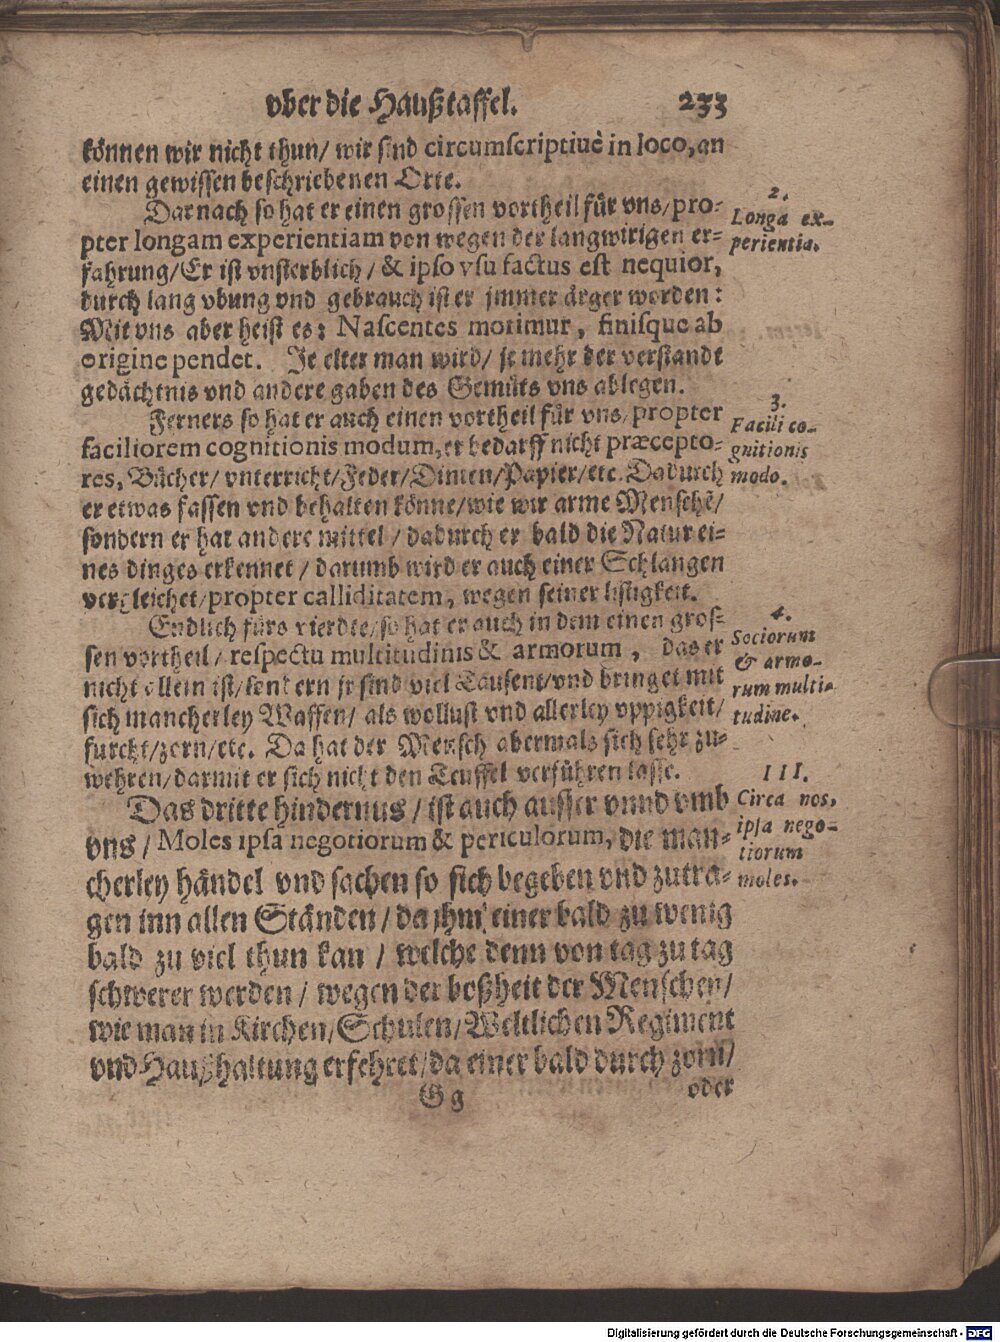 vber die Haußtaffel. 233
können wir nicht thun/ wir sind circumscriptiuè in loco, an
einen gewissen beschriebenen Orte.
Darnach so hat er einen grossen vortheil für vns/ pro-
pter longam experientiam von wegen der langwirigen er-
fahrung/ Er ist vnsterblich / & ipso vsu factus est nequior,
durch lang vbung vnd gebrauch ist er jmmer ärger worden:
Mit vns aber heist es: Nascentes morimur, finisque ab
origine pendet. Je elter man wird/ je mehr der verstandt
gedächtnis vnd andere gaben des Gemüts vns ablegen.
2.
Longa ex-
perientia.
Ferners so hat er auch einen vortheil für vns/ propter
faciliorem cognitionis modum, er bedarff nicht præcepto-
res, Bücher/ vnterricht/ Feder/ Dinten/ Papier/ etc. Dadurch
er etwas fassen vnd behalten könne/ wie wir arme Menschē/
sondern er hat andere mittel / dadurch er bald die Natur ei-
nes dinges erkennet / darumb wird er auch einer Schlangen
vergleichet/ propter calliditatem, wegen seiner listigkeit.
3.
Facili co-
gnitionis
modo.
Endlich fürs vierdte/ so hat er auch in dem einen gros-
sen vortheil / respectu multitudinis & armorum, das er
nicht allein ist/ sondern jr sind viel Tausent/ vnd bringet mit
sich mancherley Waffen/ als wollust vnd allerley vppigkeit/
furcht/ zorn/ etc. Da hat der Mensch abermals sich sehr zu-
wehren/ darmit er sich nicht den Teuffel verführen lasse.
4.
Sociorum
& armo-
rum multi-
tudine.
Das dritte hindernus / ist auch ausser vnnd vmb
vns / Moles ipsa negotiorum & periculorum, die man-
cherley händel vnd sachen so sich begeben vnd zutra-
gen inn allen Ständen / da jhm einer bald zu wenig
bald zu viel thun kan / welche denn von tag zu tag
schwerer werden / wegen der boßheit der Menschen/
wie man in Kirchen/ Schulen/ Weltlichen Regiment
vnd Haußhaltung erfehret/ da einer bald durch zorn/
III.
Circa nos,
ipsa nego-
tiorum
moles.
Gg oder
Digitalisierung gefördert durch die Deutsche Forschungsgemeinschaft - DFG